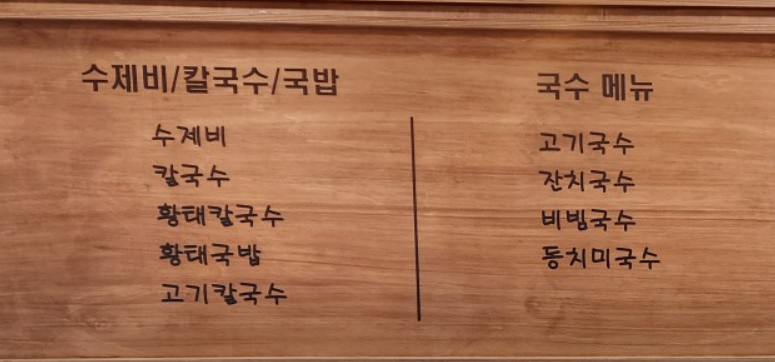 수제비/칼국수/국밥
수제비
칼국수
황태칼국수
황태국밥
고기칼국수
국수 메뉴
고기국수
잔치국수
비빔국수
동치미국수